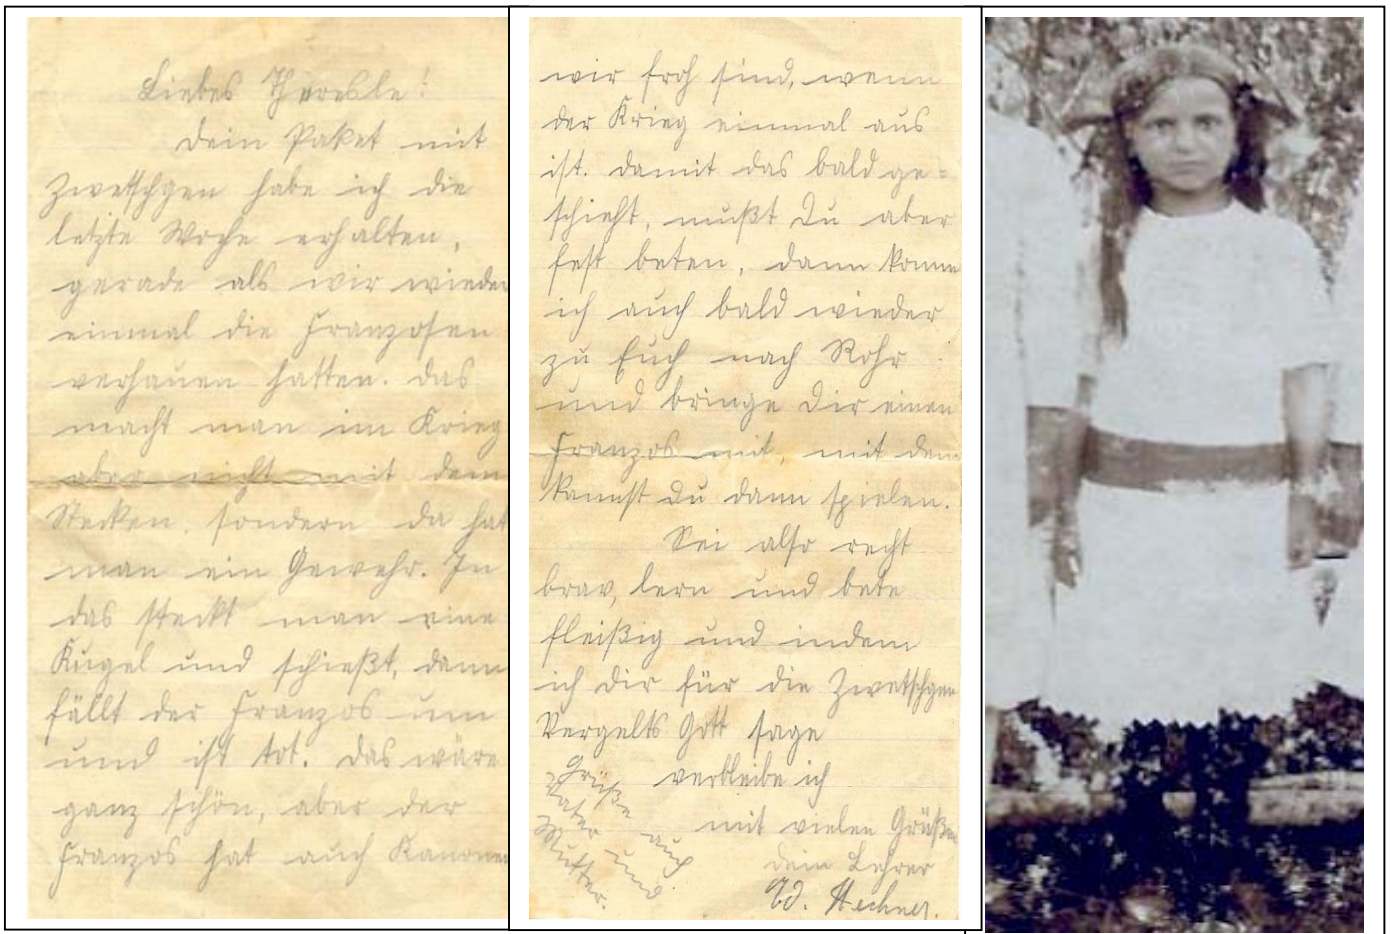 Liebes Theresle!
Dein Paket mit
Zwetschgen habe ich die
letzte Woche erhalten,
gerade als wir wieder
einmal die Franzosen
verhauen hatten. Das
macht man im Krieg
aber nicht mit dem
Stecken, sondern da hat
man ein Gewehr. In
das steckt man eine
Kugel und schießt, dann
fällt der Franzos um
und ist tot. Das wäre
ganz schön, aber der
Franzos hat auch Kanonen
wir froh sind, wenn
der Krieg einmal aus
ist. Damit das bald ge=
schieht, mußt Du aber
fest beten, dann komm
ich auch bald wieder
zu Euch nach Rohr
und bringe Dir einen
Franzos mit, mit dem
kannst Du dann spielen.
Sei also recht
brav, lern und bete
fleißig und indem
ich Dir für die Zwetschgen
Vergelts Gott sage
verbleibe ich
mit vielen Grüßen
Dein Lehrer
Ed.
Grüße
Vater auch
Mutter und